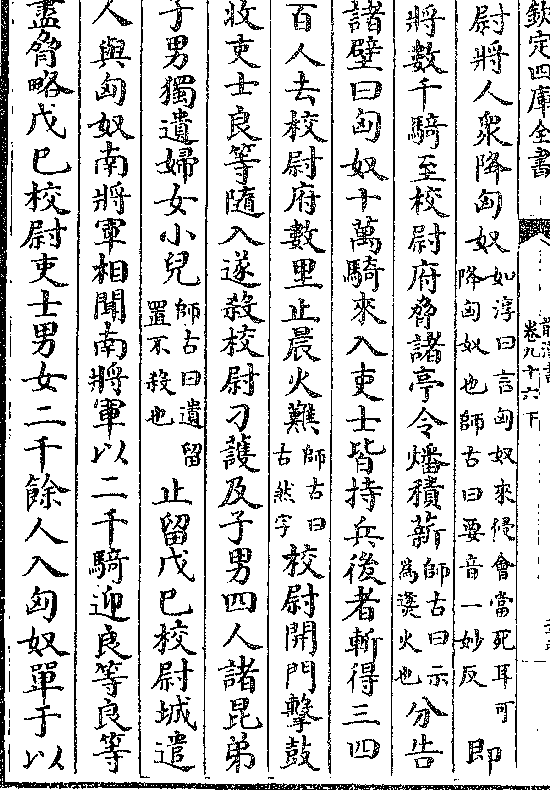 欽定四庫全書
卷九十六下
尉將人衆降匈奴如淳曰言匈奴來侵會當死耳可降匈奴也師古曰要音一妙反即
將數千騎至校尉府脅諸亭令燔積薪師古曰示為㷭火也分告
諸壁曰匈奴十萬騎來入吏士皆持兵後者斬得三四
百人去校尉府數里止晨火難師古曰古然字校尉開門擊鼔
收吏士良等隨入遂殺校尉刁䕶及子男四人諸昆弟
子男獨遺婦女小兒師古曰遺留置不殺也止留戊巳校尉城遣
人與匈奴南將軍相聞南將軍以二千騎迎良等良等
盡脅略戊巳校尉吏士男女二千餘人入匈奴單于以